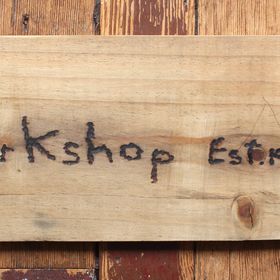 rkshop Est.